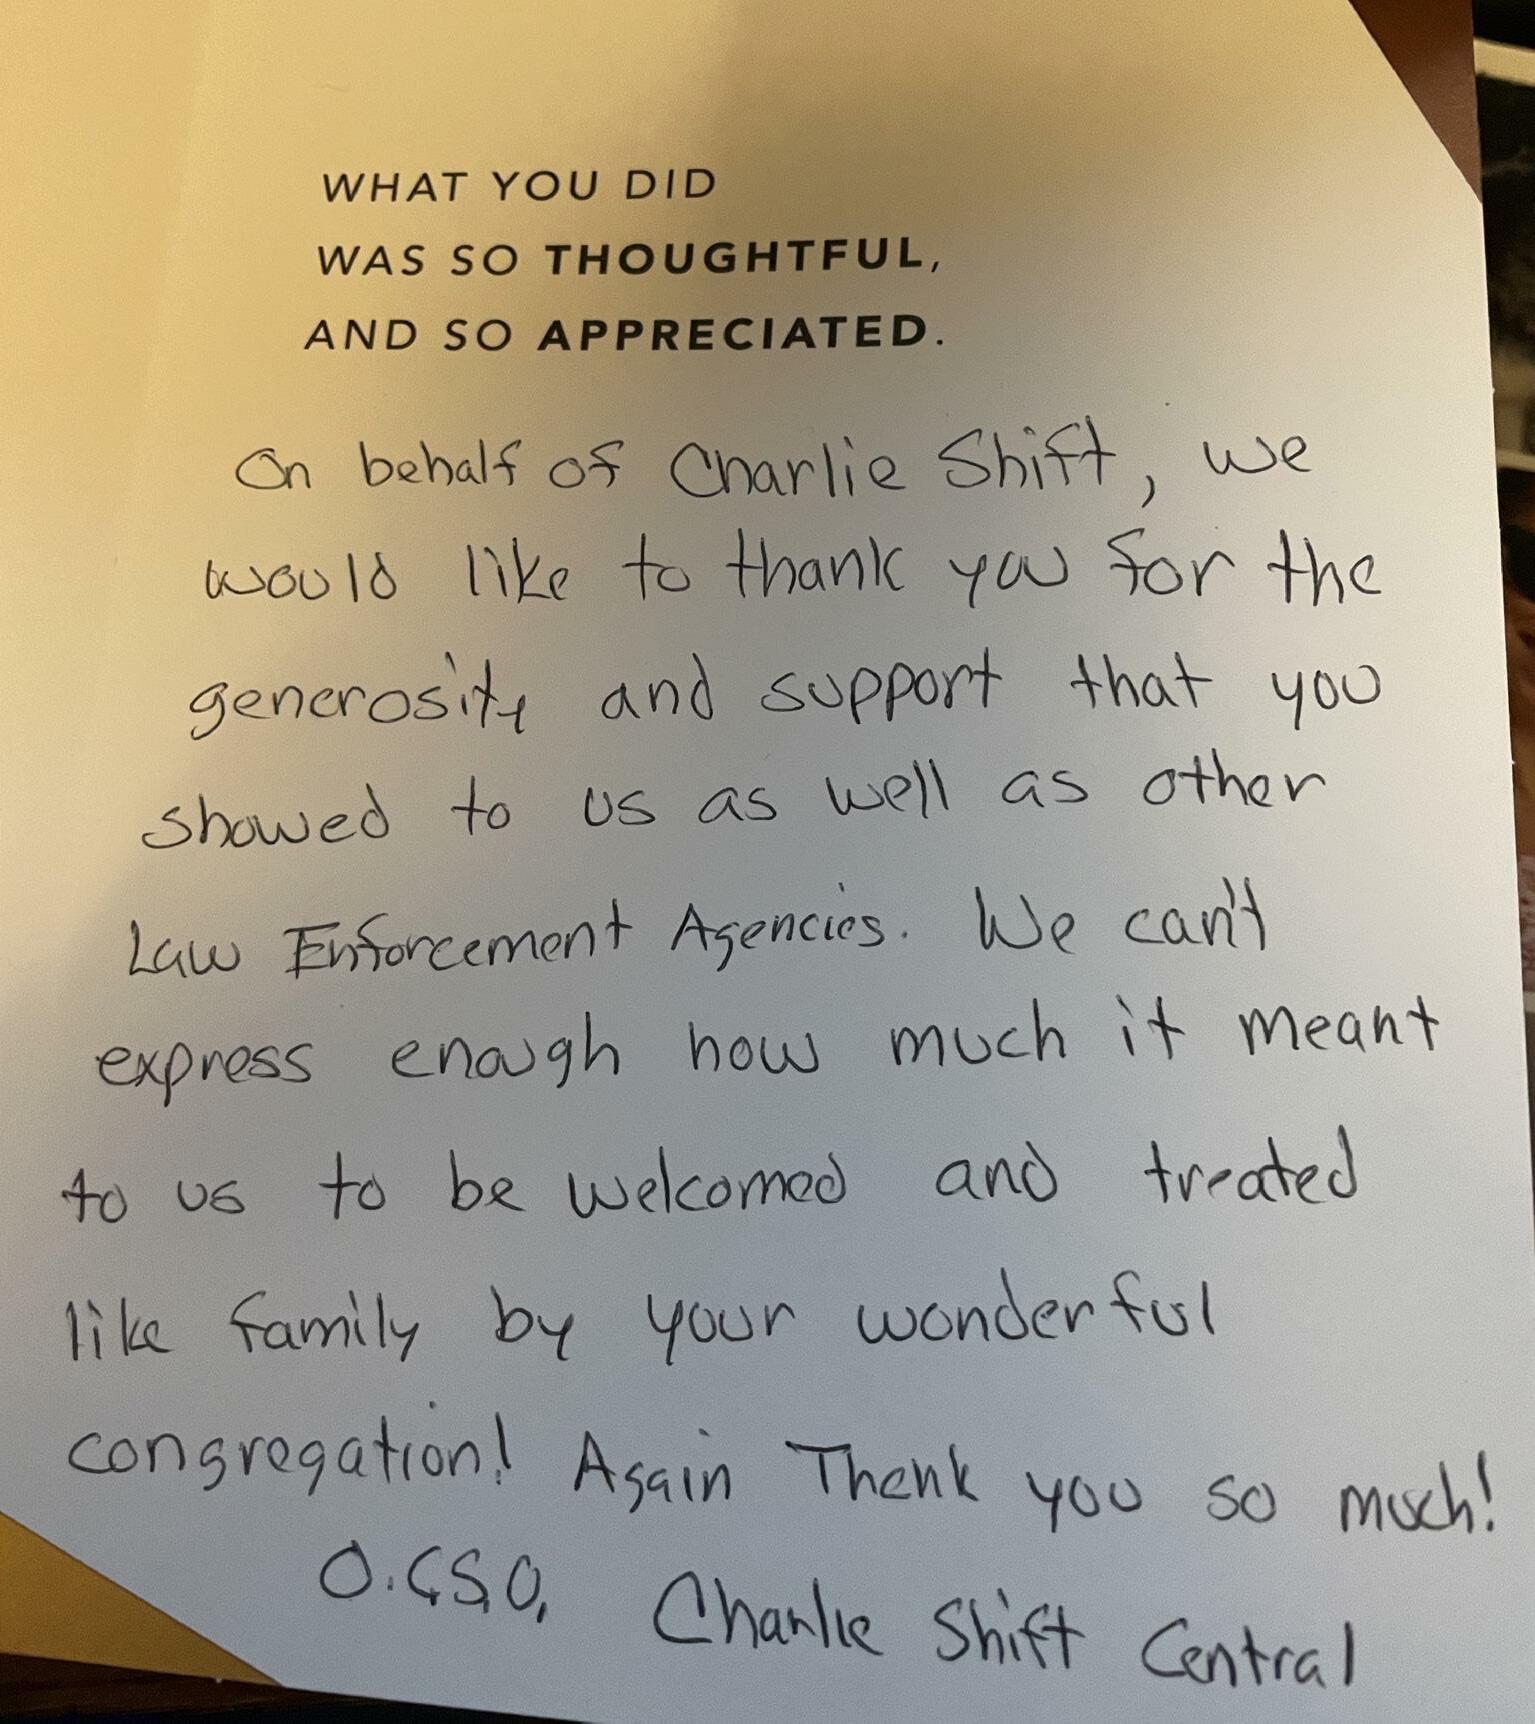 WHAT YOU DID
WAS SO THOUGHTFUL,
AND SO APPRECIATED.
On behalf of Charlie Shift, we
would like to thank you for the
generosity and support that you
showed to us as well as other
Law Enforcement Agencies. We can't
express enough how much it meant
to us to be welcomed and treated
like family by your wonderful
congregation! Again Thank you so much!
O.C.S.O. Charlie Shift Central